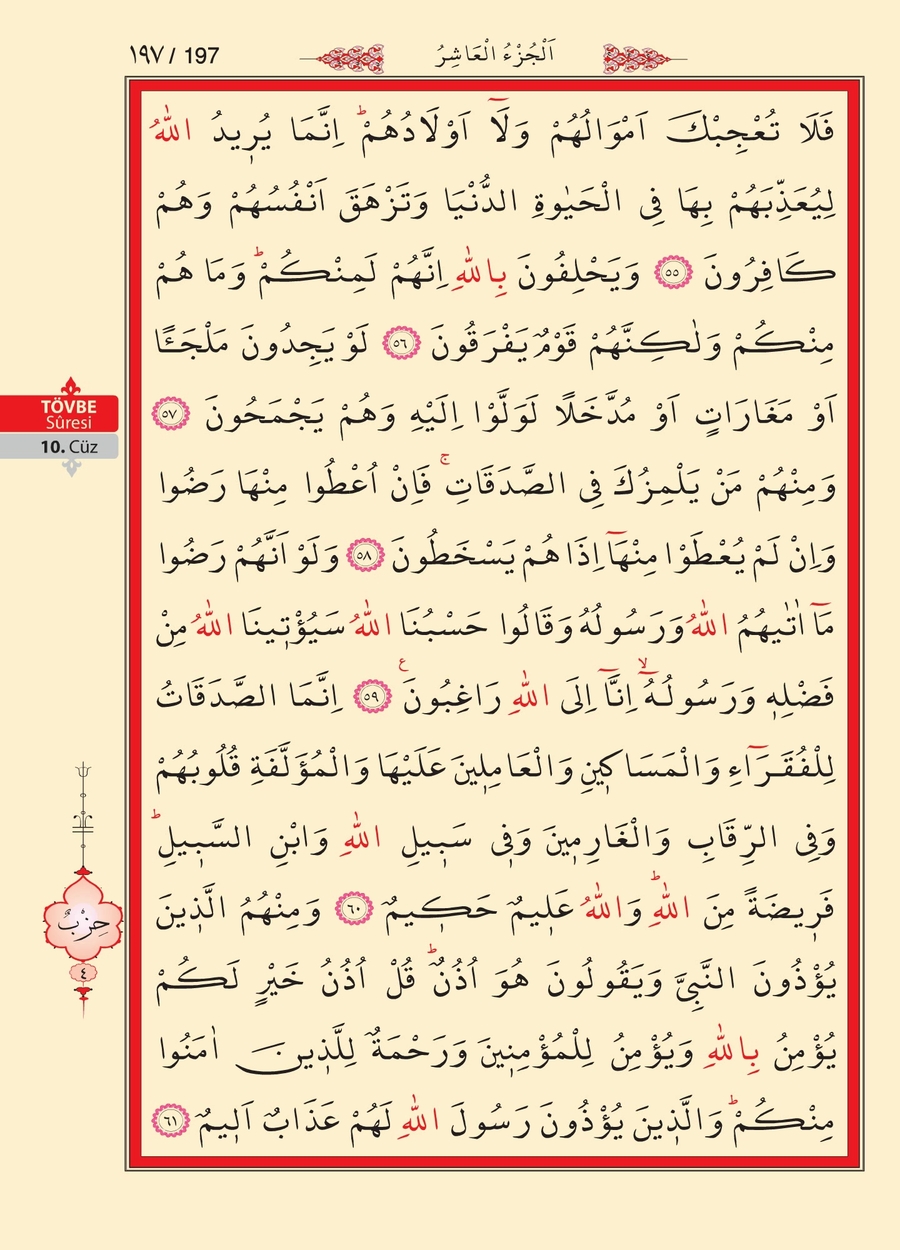 ١٩٧ / 197
اَلْجُزْءُ الْعَاشِرُ
فَلَا تُعْجِبْكَ اَمْوَالُهُمْ وَلَٓا اَوْلَادُهُمْؕ اِنَّمَا يُر۪يدُ اللّٰهُ
لِيُعَذِّبَهُمْ بِهَا فِى الْحَيٰوةِ الدُّنْيَا وَتَزْهَقَ اَنْفُسُهُمْ وَهُمْ
كَافِرُونَ ٥٥ وَيَحْلِفُونَ بِاللّٰهِ اِنَّهُمْ لَمِنْكُمْؕ وَمَا هُمْ
مِنْكُمْ وَلٰكِنَّهُمْ قَوْمٌ يَفْرَقُونَ ٥٦ لَوْ يَجِدُونَ مَلْجَـًٔا
اَوْ مَغَارَاتٍ اَوْ مُدَّخَلًا لَوَلَّوْا اِلَيْهِ وَهُمْ يَجْمَحُونَ ٥٧
وَمِنْهُمْ مَنْ يَلْمِزُكَ فِى الصَّدَقَاتِۚ فَاِنْ اُعْطُوا مِنْهَا رَضُوا
وَاِنْ لَمْ يُعْطَوْا مِنْهَٓا اِذَا هُمْ يَسْخَطُونَ ٥٨ وَلَوْ اَنَّهُمْ رَضُوا
مَٓا اٰتٰيهُمُ اللّٰهُ وَرَسُولُهُ وَقَالُوا حَسْبُنَا اللّٰهُ سَيُؤْت۪ينَا اللّٰهُ مِنْ
فَضْلِه۪ وَرَسُولُهُٓۙ اِنَّٓا اِلَى اللّٰهِ رَاغِبُونَ۟ ع ٥٩ اِنَّمَا الصَّدَقَاتُ
لِلْفُقَرَٓاءِ وَالْمَسَاك۪ينِ وَالْعَامِل۪ينَ عَلَيْهَا وَالْمُؤَلَّفَةِ قُلُوبُهُمْ
وَفِى الرِّقَابِ وَالْغَارِم۪ينَ وَف۪ى سَب۪يلِ اللّٰهِ وَابْنِ السَّب۪يلِؕ
فَر۪يضَةً مِنَ اللّٰهِؕ وَاللّٰهُ عَل۪يمٌ حَك۪يمٌ ٦٠ وَمِنْهُمُ الَّذ۪ينَ
يُؤْذُونَ النَّبِىَّ وَيَقُولُونَ هُوَ اُذُنٌؕ قُلْ اُذُنُ خَيْرٍ لَكُمْ
يُؤْمِنُ بِاللّٰهِ وَيُؤْمِنُ لِلْمُؤْمِن۪ينَ وَرَحْمَةٌ لِلَّذ۪ينَ اٰمَنُوا
مِنْكُمْؕ وَالَّذ۪ينَ يُؤْذُونَ رَسُولَ اللّٰهِ لَهُمْ عَذَابٌ اَل۪يمٌ ٦١
TÖVBE
Sûresi
10. Cüz
حِزْبٌ
٤